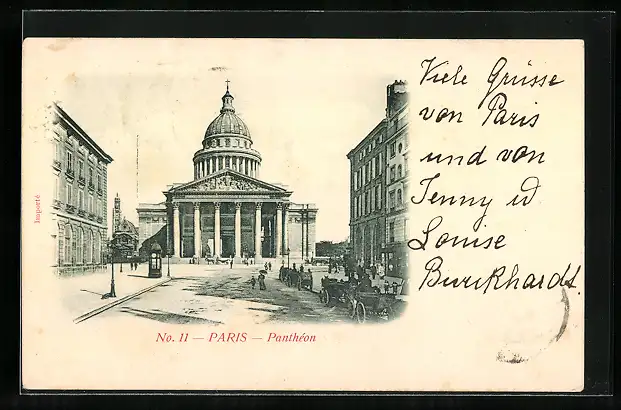 Viele Grüsse
von Paris
und von
Jenny ud
Louise
Burckhardt.
Importé
No. 11 — PARIS — Panthéon